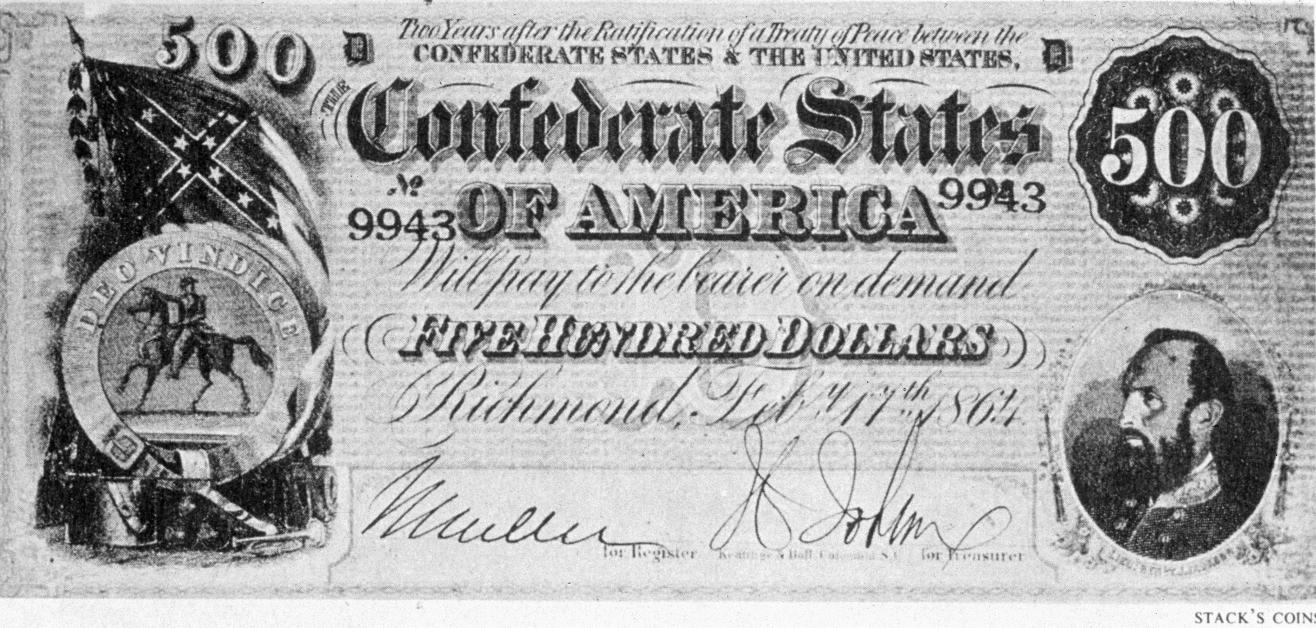 500
D
Two Years after the Ratification of a Treaty of Peace between the
CONFEDERATE STATES & THE UNITED STATES,
D
500
THE
Confederate States
Nº
9943
OF AMERICA
9943
DEO VINDICE
Will pay to the bearer on demand
FIVE HUNDRED DOLLARS
Richmond, Feby. 17th 1864
for Register
Keatinge & Ball, Columbia S.C.
for Treasurer
STACK'S COINS